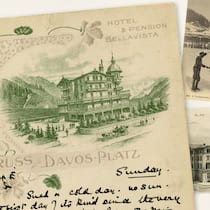 HOTEL
& PENSION
BELLAVISTA
RUSS DAVOS-PLATZ
Sunday.
Such a cold day. no sun.
day of its kind since the very